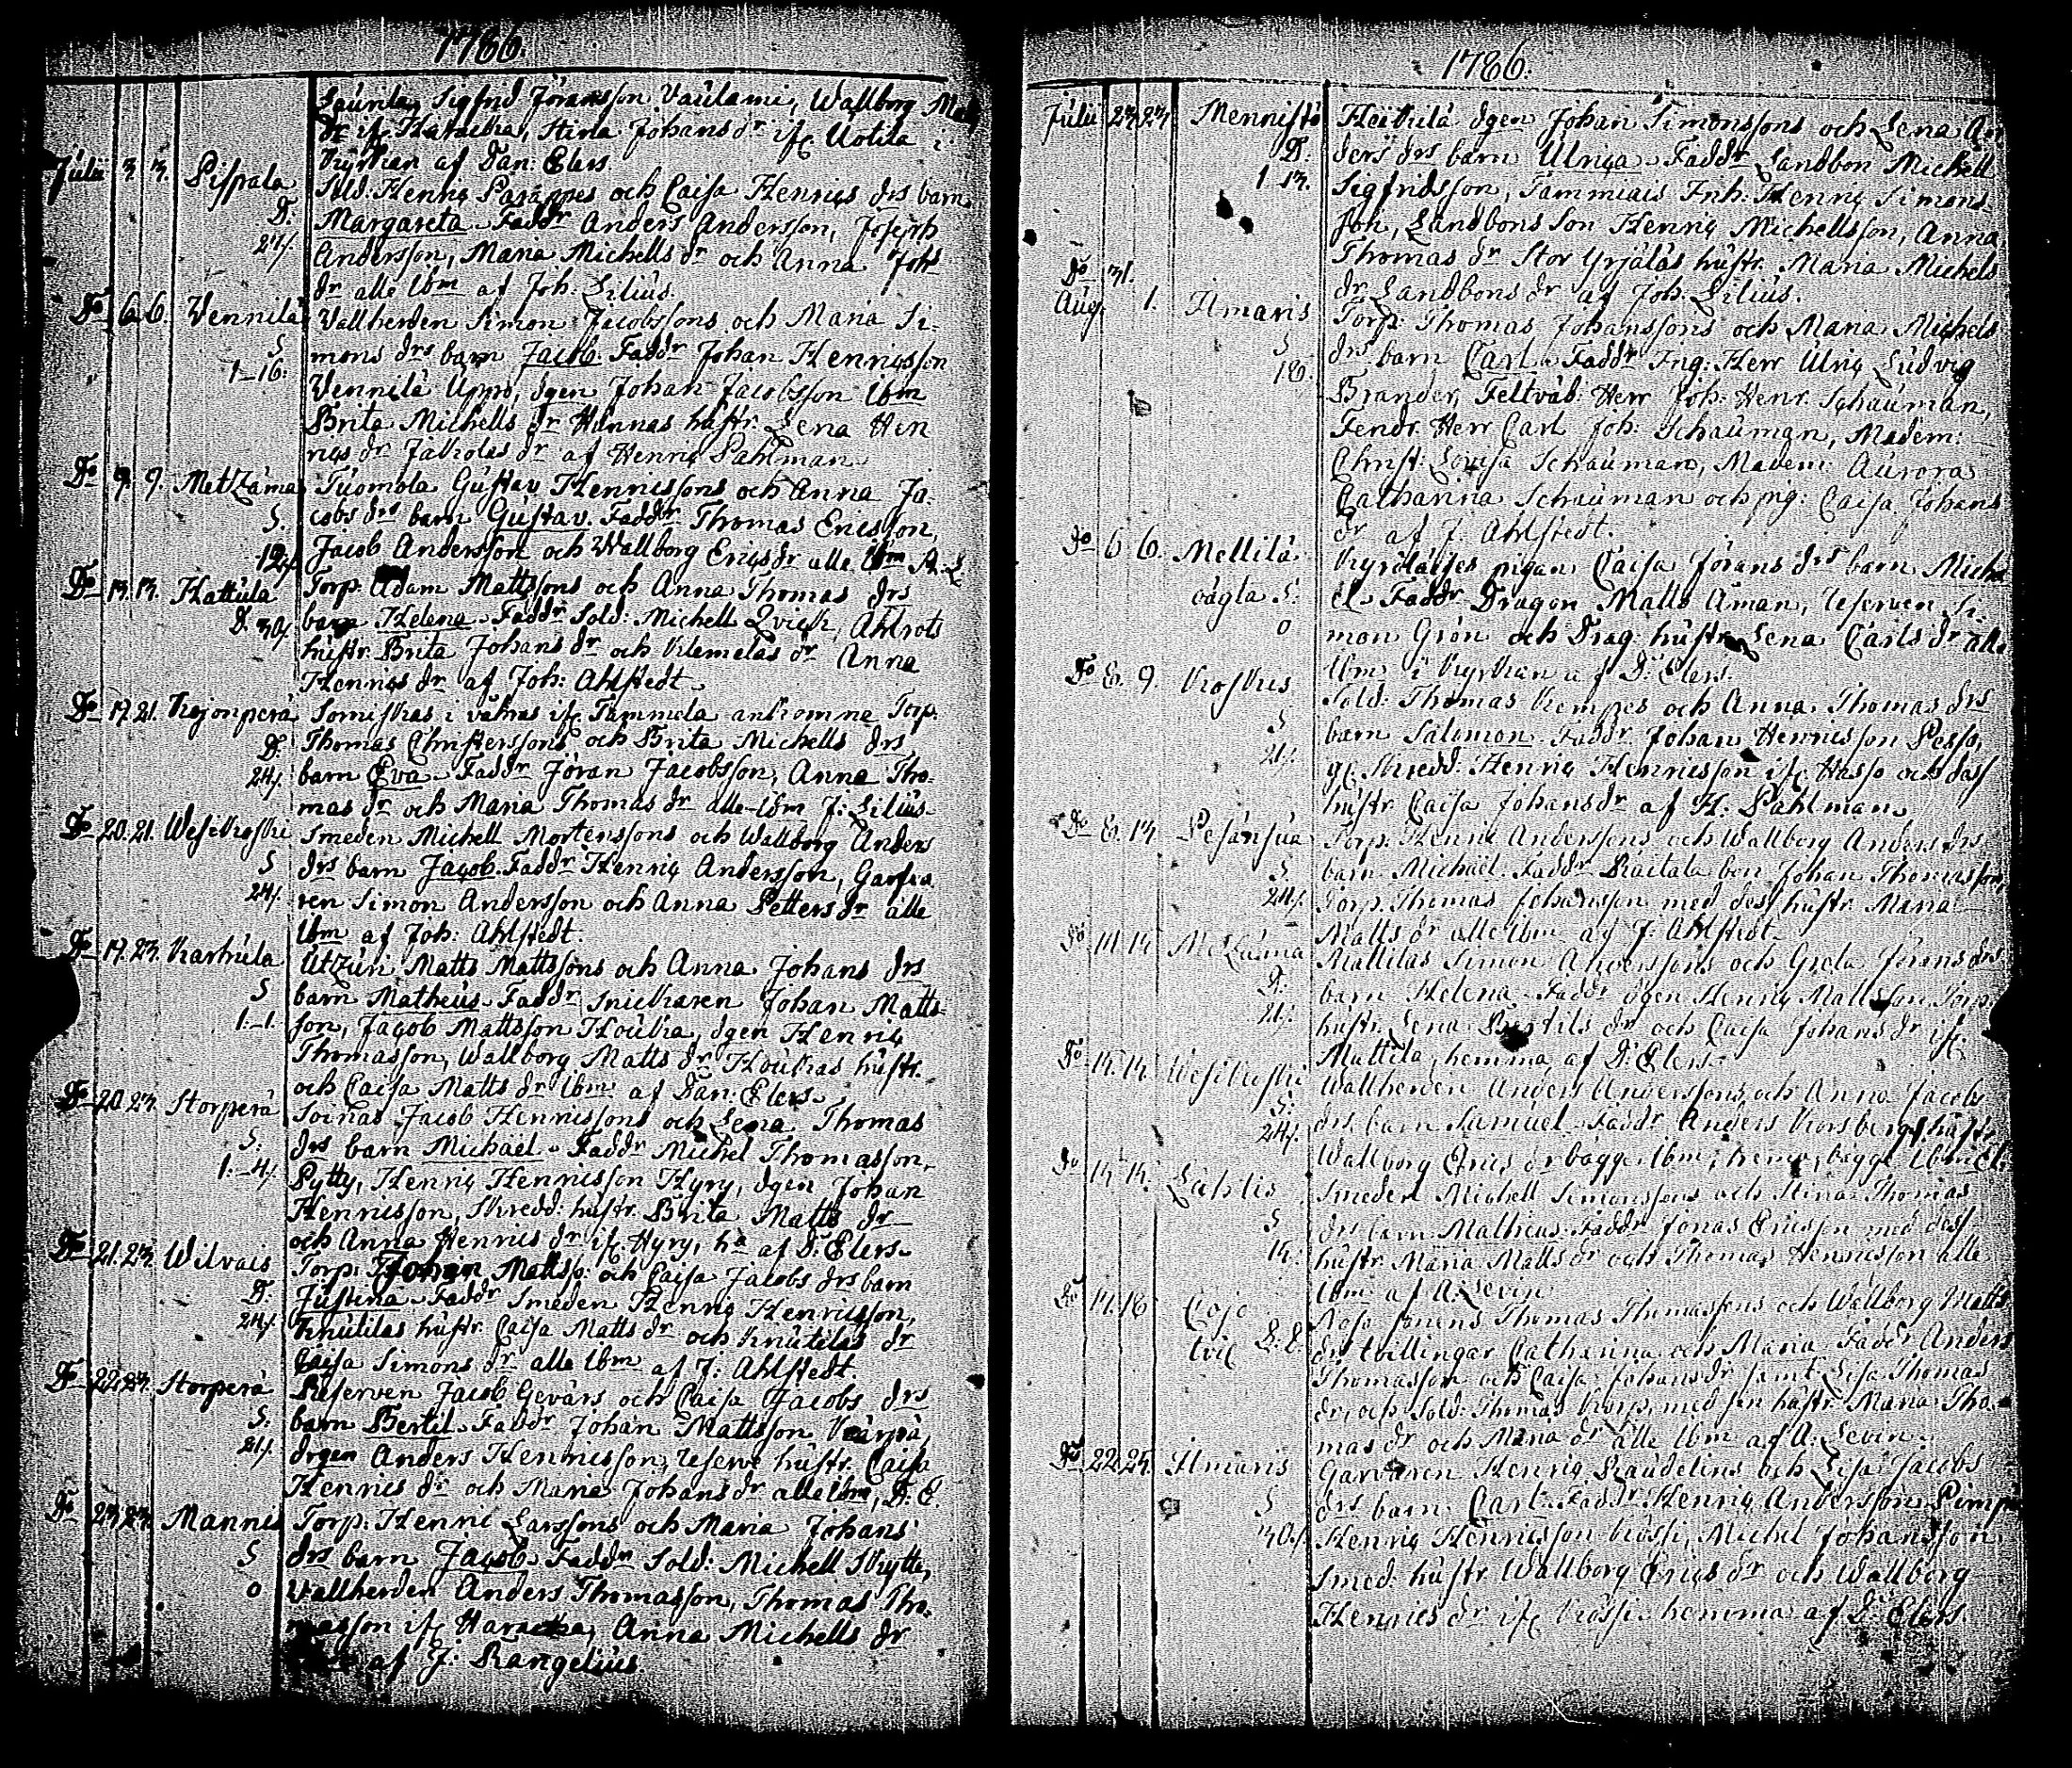 1786.
Launta, Sigfrid Jöransson Vaulami, Wallborg Matts
dr if. Haracka, Stina Johans dr if. Uotila i
kyrkan af Dan: Elers.
Julii 3. 3. Pispala Sold. Henriq Parappes och Caisa Henriqs drs barn
D. Margareta. Faddr Anders Andersson, Joseph
24/. Andersson, Maria Michells dr och Anna Joh:s
dr alle Ibm af Joh: Lilius.
Do 6. 6. Vennilä Vallherden Simon Jacobssons och Maria Si-
S mons drs barn Jacob. Faddr Johan Henriqsson
1-16. Vennilä Uppo, dgen Johan Jacobsson Ibm
Brita Michells dr Hinnas hustr. Lena Hen
riqs dr Jalkolas dr af Henriq Pahlman
Do 9. 9. Metzäma Tuomola Gustav Henricssons och Anna Ja-
S. cobs drs barn Gustav. Faddr Thomas Ericsson,
12/. Jacob Andersson och Wallborg Eriqs dr alle Ibm A. L
Do 13. 13. Kattula Torp: Adam Mattssons och Anna Thomas drs
D. 30/. barn Helena. Faddr Sold: Michell Qvick, Ahlrots
hustr. Brita Johans dr och Klemelas dr Anna
Henriqs dr af Joh: Ahlstedt
Do 17. 21. Kojonperä Somistkas i våhras if. Tammela ankomne Torp.
D. Thomas Christerssons och Brita Michells drs
24/. barn Eva. Faddr Jöran Jacobsson, Anna Tho-
mas dr och Maria Thomas dr alle Ibm J: Lilius
Do 20. 21. Wesikoski Smeden Michell Mortenssons och Wallborg Anders
S drs barn Jacob. Faddr Henriq Andersson, Garfva
24/. ren Simon Andersson och Anna Petters dr alle
Ibm af Joh: Ahlstedt.
Do 17. 23. Karhula Utzuri Matts Mattssons och Anna Johans drs
S barn Matheus. Faddr Snickaren Johan Matts-
1:-1. son, Jacob Mattsson Houcka, dgen Henriq
Thomasson, Wallborg Matts dr Houkas hustr.
och Caisa Matts dr Ibm af Dan: Elers.
Do 20 23. Storperä Soinas Jacob Henricssons och Lena Thomas
S. drs barn Michaël. Faddr Michel Thomasson,
1.-4/. Pytty, Henriq Henricsson Hyry, dgen Johan
Henricsson, Skredd: hustr. Brita Matts dr
och Anna Henrics dr if. Hyry, ha af D: Elers.
Do 21. 23. Wilvais Torp: Johan Mattss: och Caisa Jacobs drs barn
D. Justina. Faddr Smeden Henriq Henricsson,
24/. Knutilas hustr. Caisa Matts dr och Knutilas dr
Caisa Simons dr alle Ibm af J: Ahlstedt.
Do 22. 23. Storperä Reserven Jacob Gevärs och Caisa Jacobs drs
S. barn Bertil. Faddr Johan Mattsson Kärpä,
21/. drgen Anders Henricsson, reserve hustr. Caisa
Henrics dr och Maria Johans dr alle Ibm, D: E.
Do 23. 23. Mannis Torp: Henric Larssons och Maria Johans
S drs barn Jacob. Faddr Sold: Michell Skytte,
0 Vallherden Anders Thomasson, Thomas Tho-
masson if. Haracka, Anna Michells dr
af J: Rangelius.
1786.
Julii 23 23 Mennistö Heikulä dgen Johan Simonssons och Lena An
D: ders drs barn Ulriqa. Faddr Landbon Michell
1 13. Sigfridsson, Tammiais Inh: Henriq Simons-
son, Landbons Son Henriq Michellsson, Anna
Thomas dr Stor Yrjäläs hustr. Maria Michels
dr Landbons dr af Joh: Lilius.
Do 31.
Aug. 1. Ilmaris Torp: Thomas Johanssons och Maria Michels
S drs barn Carl. Faddr Ing: Herr Ulriq Ludvig
18. Brander, Feltväb: Herr Joh: Henr. Schauman,
Fendr. Herr Carl Joh: Schauman, Madem:
Christ: Lovisa Schauman, Madem: Aurora
Catharina Schauman och pig: Caisa Johans
dr af J. Ahlstedt.
Do 6 6. Mellilä Kyrölaises pigan Caisa Jörans drs barn Micha
S. el. Faddr Dragon Matts Åman, reserven Si-
0 mon Grön och Drag: hustr. Lena Carls dr alle
Ibm i kyrkan af D: Elers.
Do 8. 9. Koskis Sold: Thomas Kempes och Anna Thomas drs
S barn Salomon. Faddr Johan Henricsson Pesso,
21/. gl. Skredd: Henriq Henricsson if. Hasso och dess
hustr Caisa Johans dr af H: Pahlman.
Do 8. 13 Pesänsua Torp: Henric Anderssons och Wallborg Anders drs
S. barn Michaël. Faddr Raitala bon Johan Thomasson,
24/. Torp. Thomas Johansson med dess hustr. Maria
Matts dr alle Ibm af J: Ahlstedt.
Do 14 Metzäma Mattilas Simon Anderssons och Greta Jörans drs
D: barn Helena. Faddr dgen Henriq Mattsson, Torp.
21/. hustr. Lena Bertils dr och Caisa Johans dr if.
Mattila, hemma, af D: Elers.
Do 14. 14. Wesikoski Wallherden Anders Anderssons och Anna Jacobs
S: drs barn Samuel. Faddr Anders Korsberg, hustr
24/. Wallborg Erics dr bägge Ibm,
Do Lahtis Smeden Michell Simonssons och Stina Thomas
S drs barn Matheus. Faddr Jonas Ericsson med dess
hustr Maria Matts dr och Thomas Henricsson alle
Ibm af A: Levin.
Do 18 Cojo Thomas Thomassons och Wallborg Matts
drs tvillingar Catharina och Maria. Faddr Anders
Thomasson och Caisa Johans dr samt Lisa Thomas
dr, och Sold: Thomas Korp, med sin hustr. Maria Tho-
mas dr och Maria dr alle Ibm af A: Levin.
Do 22. 25. Ilmaris Garvaren Henriq Laudelins och Lisa Jacobs
S drs barn Carl. Faddr Henriq Andersson Pimp
30/. Henriq Henricsson Kåssi, Michel Johansson
Smed: hustr Wallborg Erics dr och Wallborg
Henrics dr if. Kåssi hemma af D: Elers